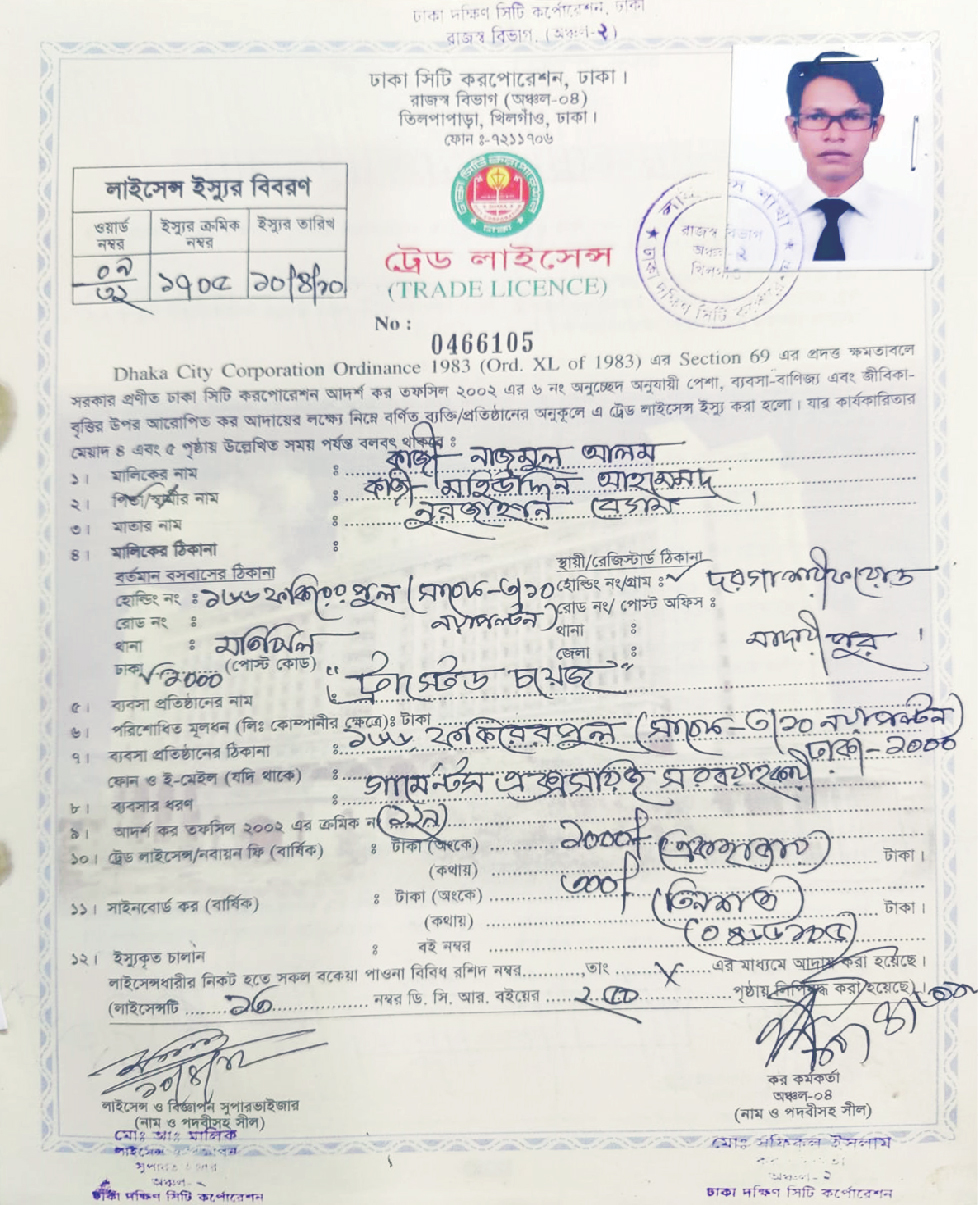 ঢাকা দক্ষিণ সিটি কর্পোরেশন, ঢাকা
রাজস্ব বিভাগ, (অঞ্চল-২)
ঢাকা সিটি করপোরেশন, ঢাকা।
রাজস্ব বিভাগ (অঞ্চল-০৪)
তিলপাপাড়া, খিলগাঁও, ঢাকা।
ফোন ঃ-৭২১১৭০৬
লাইসেন্স ইস্যুর বিবরণ
ওয়ার্ড নম্বর
ইস্যুর ক্রমিক নম্বর
ইস্যুর তারিখ
০৯
৩২
১৭০৫
১০/৪/১০
ট্রেড লাইসেন্স
(TRADE LICENCE)
রাজস্ব বিভাগ
অঞ্চল-২
খিলগাঁও
No :
0466105
Dhaka City Corporation Ordinance 1983 (Ord. XL of 1983) এর Section 69 এর প্রদত্ত ক্ষমতাবলে
সরকার প্রণীত ঢাকা সিটি করপোরেশন আদর্শ কর তফসিল ২০০২ এর ৬ নং অনুচ্ছেদ অনুযায়ী পেশা, ব্যবসা-বাণিজ্য এবং জীবিকা-
বৃত্তির উপর আরোপিত কর আদায়ের লক্ষ্যে নিম্নে বর্ণিত ব্যক্তি/প্রতিষ্ঠানের অনুকূলে এ ট্রেড লাইসেন্স ইস্যু করা হলো। যার কার্যকারিতার
মেয়াদ ৪ এবং ৫ পৃষ্ঠায় উল্লেখিত সময় পর্যন্ত বলবৎ থাকিবে ঃ
১। মালিকের নাম ঃ কাজী নাজমুল আলম
২। পিতা/স্বামীর নাম ঃ কাজী মহিউদ্দিন আহাম্মদ
৩। মাতার নাম ঃ নুরজাহান বেগম।
৪। মালিকের ঠিকানা ঃ
বর্তমান বসবাসের ঠিকানা স্থায়ী/রেজিস্টার্ড ঠিকানা
হোল্ডিং নং ঃ ১৬৬ ফকিরেরপুল (সাবেক-৩/১০ নয়াপল্টন) হোল্ডিং নং/গ্রাম ঃ
রোড নং ঃ রোড নং/ পোস্ট অফিস ঃ
থানা ঃ মতিঝিল থানা ঃ
ঢাকা ১০০০ (পোস্ট কোড) জেলা ঃ মাদারীপুর।
৫। ব্যবসা প্রতিষ্ঠানের নাম "ট্রাস্টেড চয়েজ"
৬। পরিশোধিত মূলধন (লিঃ কোম্পানীর ক্ষেত্রে)ঃ টাকা
৭। ব্যবসা প্রতিষ্ঠানের ঠিকানা ঃ ১৬৬ ফকিরেরপুল (সাবেক-৩/১০ নয়াপল্টন) ঢাকা-১০০০
ফোন ও ই-মেইল (যদি থাকে) ঃ
৮। ব্যবসার ধরণ ঃ গার্মেন্টস এক্সেসরিজ সরবরাহকারী
৯। আদর্শ কর তফসিল ২০০২ এর ক্রমিক নং
১০। ট্রেড লাইসেন্স/নবায়ন ফি (বার্ষিক) ঃ টাকা (অংকে) ১০০০/ (একহাজার)
(কথায়) টাকা।
১১। সাইনবোর্ড কর (বার্ষিক) ঃ টাকা (অংকে) ৩০০/ (তিনশত)
(কথায়) টাকা।
১২। ইস্যুকৃত চালান ঃ বই নম্বর
লাইসেন্সধারীর নিকট হতে সকল বকেয়া পাওনা বিবিধ রশিদ নম্বর..........,তাং ..... X ..... এর মাধ্যমে আদায় করা হয়েছে।
(লাইসেন্সটি ..... ১৬ ..... নম্বর ডি. সি. আর. বইয়ের ..... পৃষ্ঠায় লিপিবদ্ধ করা হয়েছে)।
লাইসেন্স ও বিজ্ঞাপন সুপারভাইজার
(নাম ও পদবীসহ সীল)
মোঃ আঃ মালিক
ঢাকা দক্ষিণ সিটি কর্পোরেশন
কর কর্মকর্তা
অঞ্চল-০৪
(নাম ও পদবীসহ সীল)
মোঃ সফিকুল ইসলাম
অঞ্চল-২
ঢাকা দক্ষিণ সিটি কর্পোরেশন